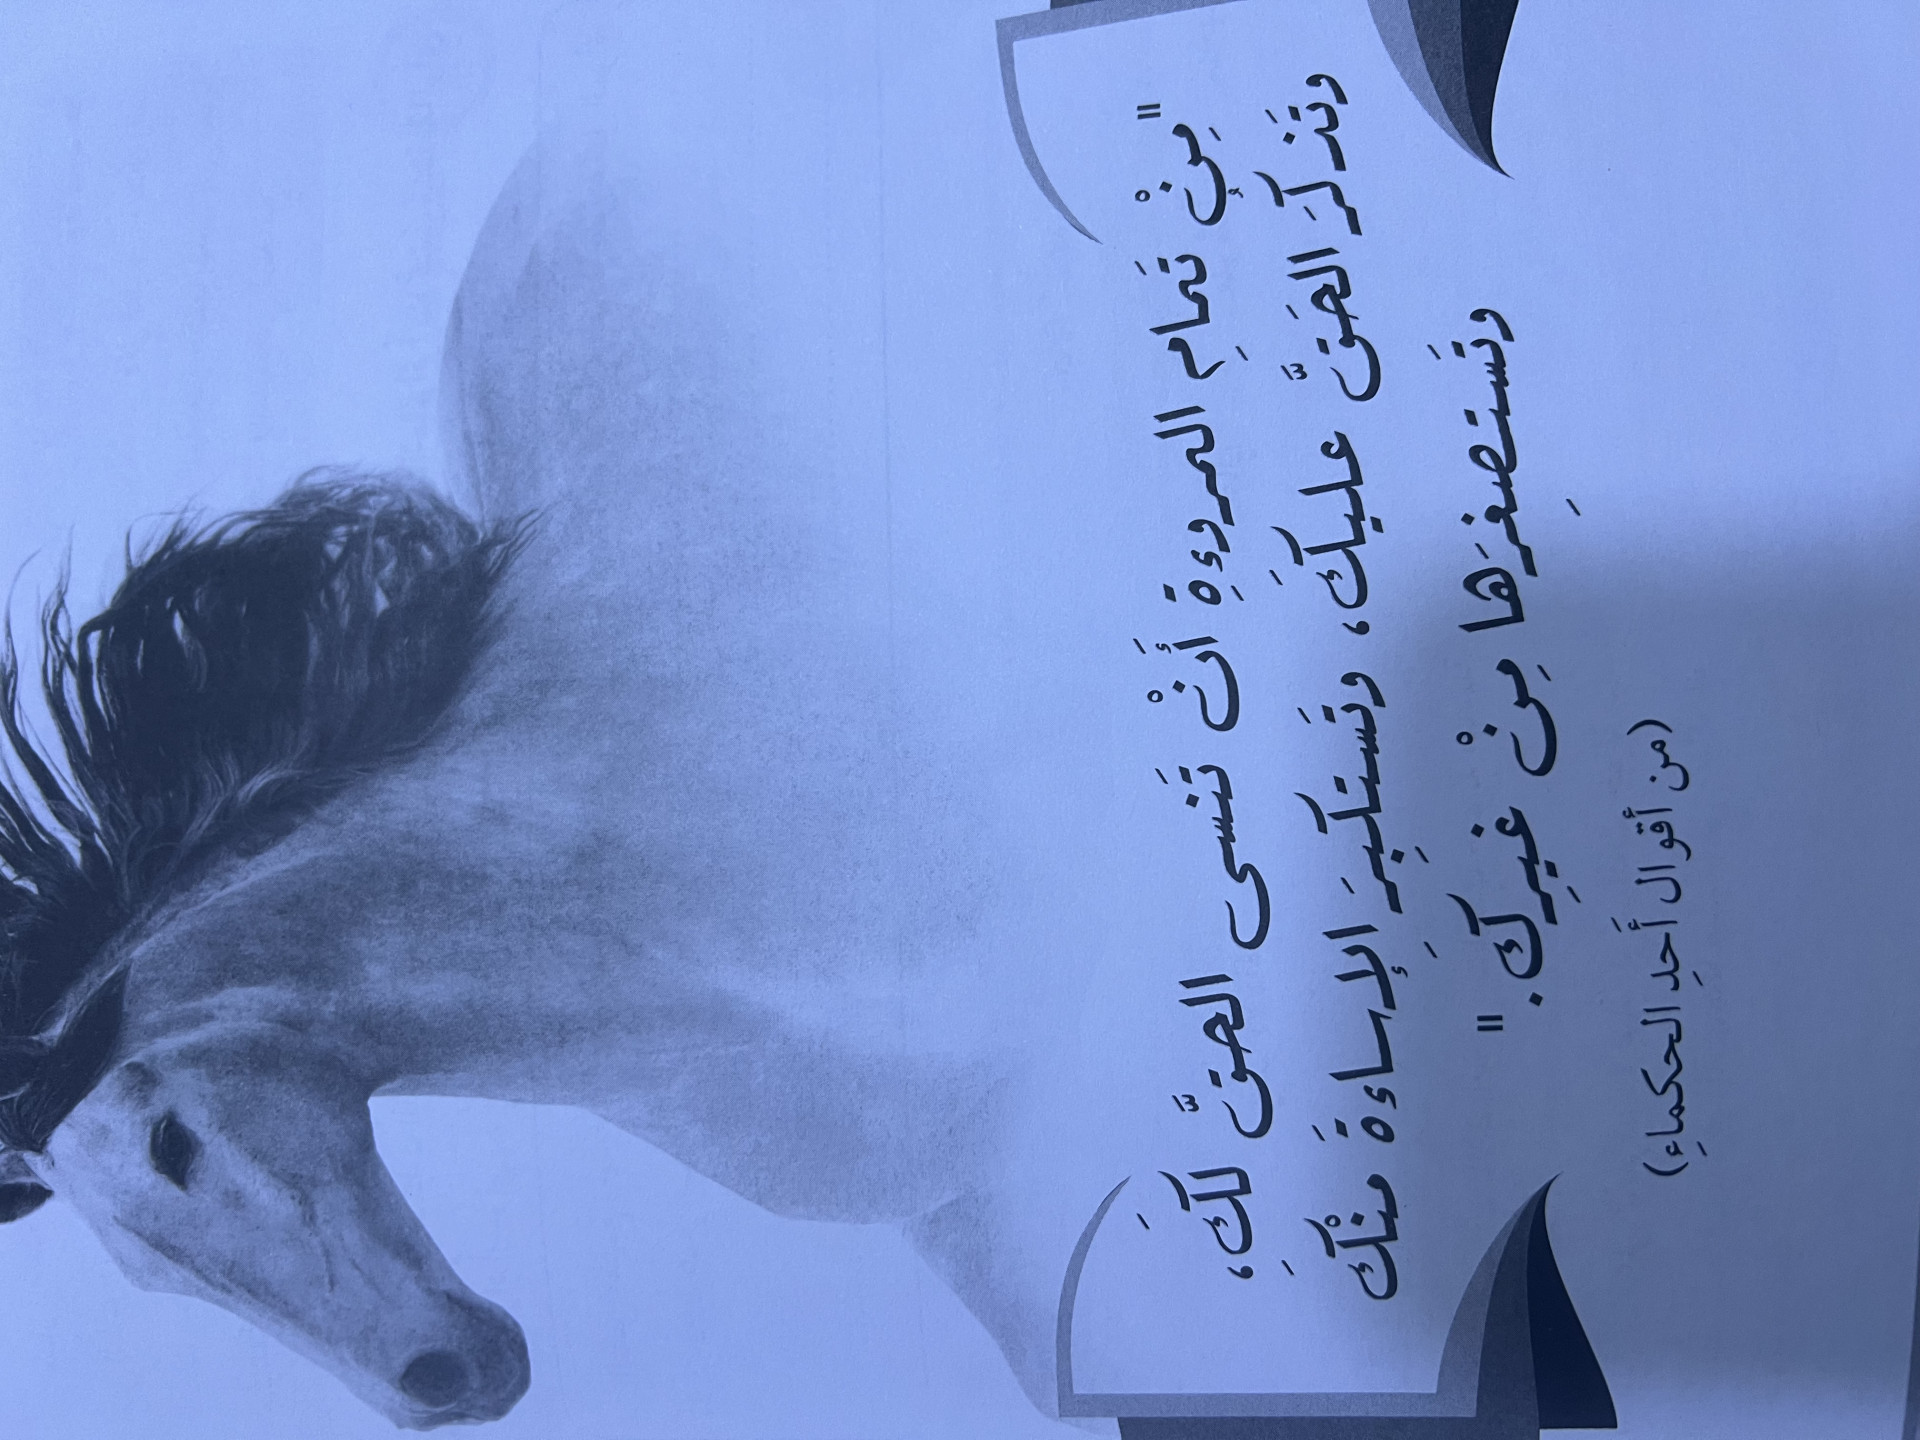 "مِنْ تَمامِ المروءةِ أَنْ تَنسى الحقَّ لكَ،
وتَذكرَ الحَقَّ عليكَ، وتَستكبِرَ الإِساءةَ منْكَ
وتَستصغِرَها مِنْ غيرِكَ."
(من أقوال أَحدِ الحكماءِ)